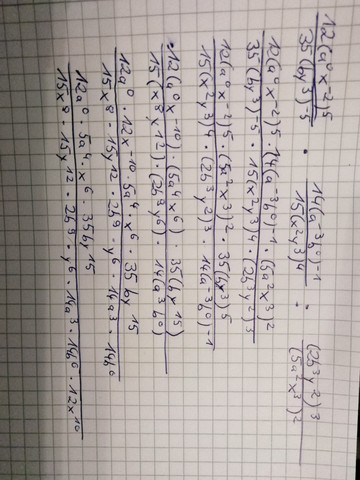 12(a⁰x⁻²)⁵ · 14(a⁻³b⁰)⁻¹ : (2b³y²)³
35(by³)⁻⁵ 15(x²y³)⁴ (5a²x³)²
12(a⁰x⁻²)⁵ · 14(a⁻³b⁰)⁻¹ · (5a²x³)²
35(by³)⁻⁵ · 15(x²y³)⁴ · (2b³y²)³
12(a⁰x⁻²)⁵ · (5a²x³)² · 35(by³)⁵
15(x²y³)⁴ · (2b³y²)³ · 14(a⁻³b⁰)⁻¹
12(a⁰x⁻¹⁰) · (5a⁴x⁶) · 35(by¹⁵)
15(x⁸y¹²) · (2b⁹y⁶) · 14(a³b⁰)
12a⁰ · 12x⁻¹⁰ · 5a⁴ · x⁶ · 35by¹⁵
15x⁸ · 15y¹² · 2b⁹ · y⁶ · 14a³ · 14b⁰
12a⁰ · 5a⁴ · x⁶ · 35by¹⁵
15x⁸ · 15y¹² · 2b⁹ · y⁶ · 14a³ · 14b⁰ · 12x¹⁰